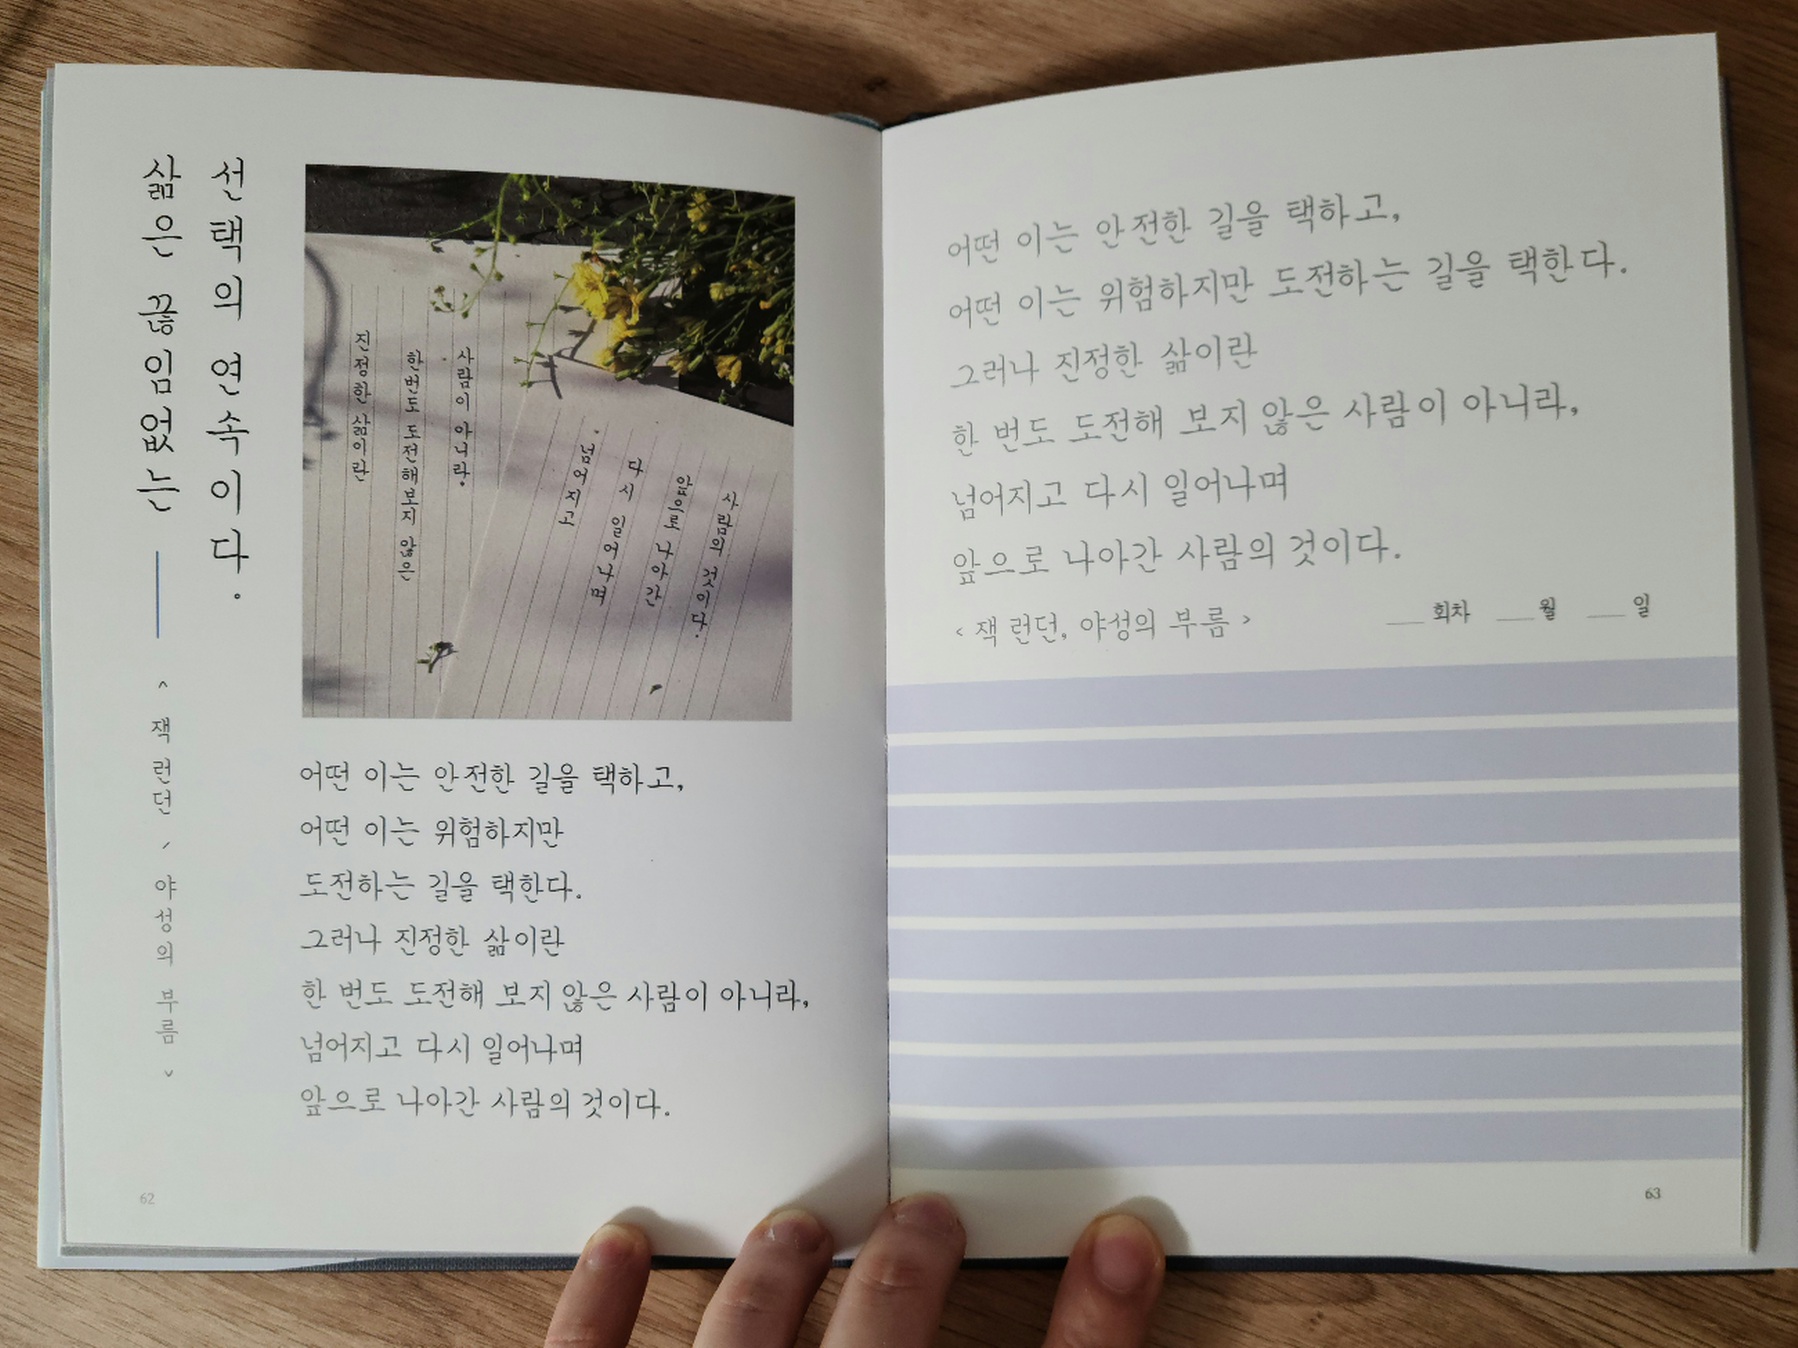 삶은 끊임없는
선택의 연속이다.
< 잭 런던 / 야성의 부름 >
진정한 삶이란
한번도 도전해보지 않은
사람이 아니라.
넘어지고
다시 일어나며
앞으로 나아간
사람의 것이다.
어떤 이는 안전한 길을 택하고,
어떤 이는 위험하지만
도전하는 길을 택한다.
그러나 진정한 삶이란
한 번도 도전해 보지 않은 사람이 아니라,
넘어지고 다시 일어나며
앞으로 나아간 사람의 것이다.
62
어떤 이는 안전한 길을 택하고,
어떤 이는 위험하지만 도전하는 길을 택한다.
그러나 진정한 삶이란
한 번도 도전해 보지 않은 사람이 아니라,
넘어지고 다시 일어나며
앞으로 나아간 사람의 것이다.
< 잭 런던, 야성의 부름 > __ 회차 __ 월 __ 일
63